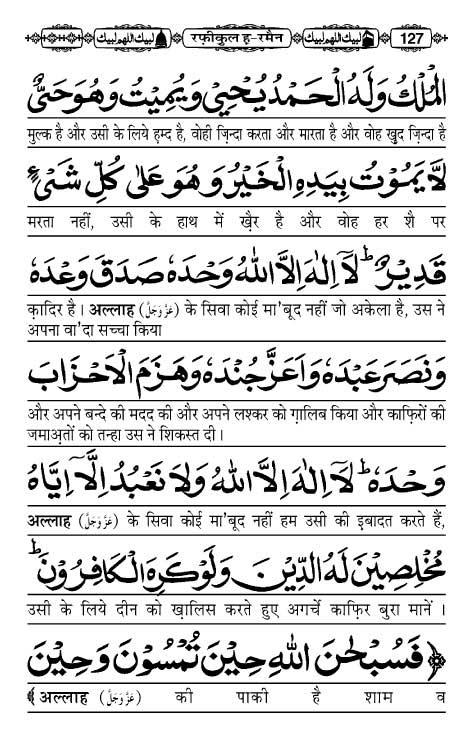 لبيك اللهم لبيك रफ़ीकुल ह-रमैन لبيك اللهم لبيك 127
الْمُلْكُ وَلَهُ الْحَمْدُ يُحْيِيْ وَيُمِيْتُ وَهُوَ حَىٌّ
मुल्क है और उसी के लिये हम्द है, वोही ज़िन्दा करता और मारता है और वोह खुद ज़िन्दा है
لَّا يَمُوْتُ بِيَدِهِ الْخَيْرُ وَهُوَ عَلٰى كُلِّ شَىْءٍ
मरता नहीं, उसी के हाथ में ख़ैर है और वोह हर शै पर
قَدِيْرٌ ؕ لَآ اِلٰهَ اِلَّا اللّٰهُ وَحْدَهٗ صَدَقَ وَعْدَهٗ
क़ादिर है। अल्लाह (عَزَّوَجَلَّ) के सिवा कोई मा'बूद नहीं जो अकेला है, उस ने
अपना वा'दा सच्चा किया
وَنَصَرَ عَبْدَهٗ وَاَعَزَّ جُنْدَهٗ وَهَزَمَ الْاَحْزَابَ
और अपने बन्दे की मदद की और अपने लश्कर को ग़ालिब किया और काफ़िरों की
जमाअ़तों को तन्हा उस ने शिकस्त दी।
وَحْدَهٗ ؕ لَآ اِلٰهَ اِلَّا اللّٰهُ وَلَا نَعْبُدُ اِلَّآ اِيَّاهُ
अल्लाह (عَزَّوَجَلَّ) के सिवा कोई मा'बूद नहीं हम उसी की इबादत करते हैं,
مُخْلِصِيْنَ لَهُ الدِّيْنَ وَلَوْ كَرِهَ الْكَافِرُوْنَ ؕ
उसी के लिये दीन को ख़ालिस करते हुए अगर्चे काफ़िर बुरा मानें।
﴿ فَسُبْحٰنَ اللّٰهِ حِيْنَ تُمْسُوْنَ وَحِيْنَ
﴾ अल्लाह (عَزَّوَجَلَّ) की पाकी है शाम व